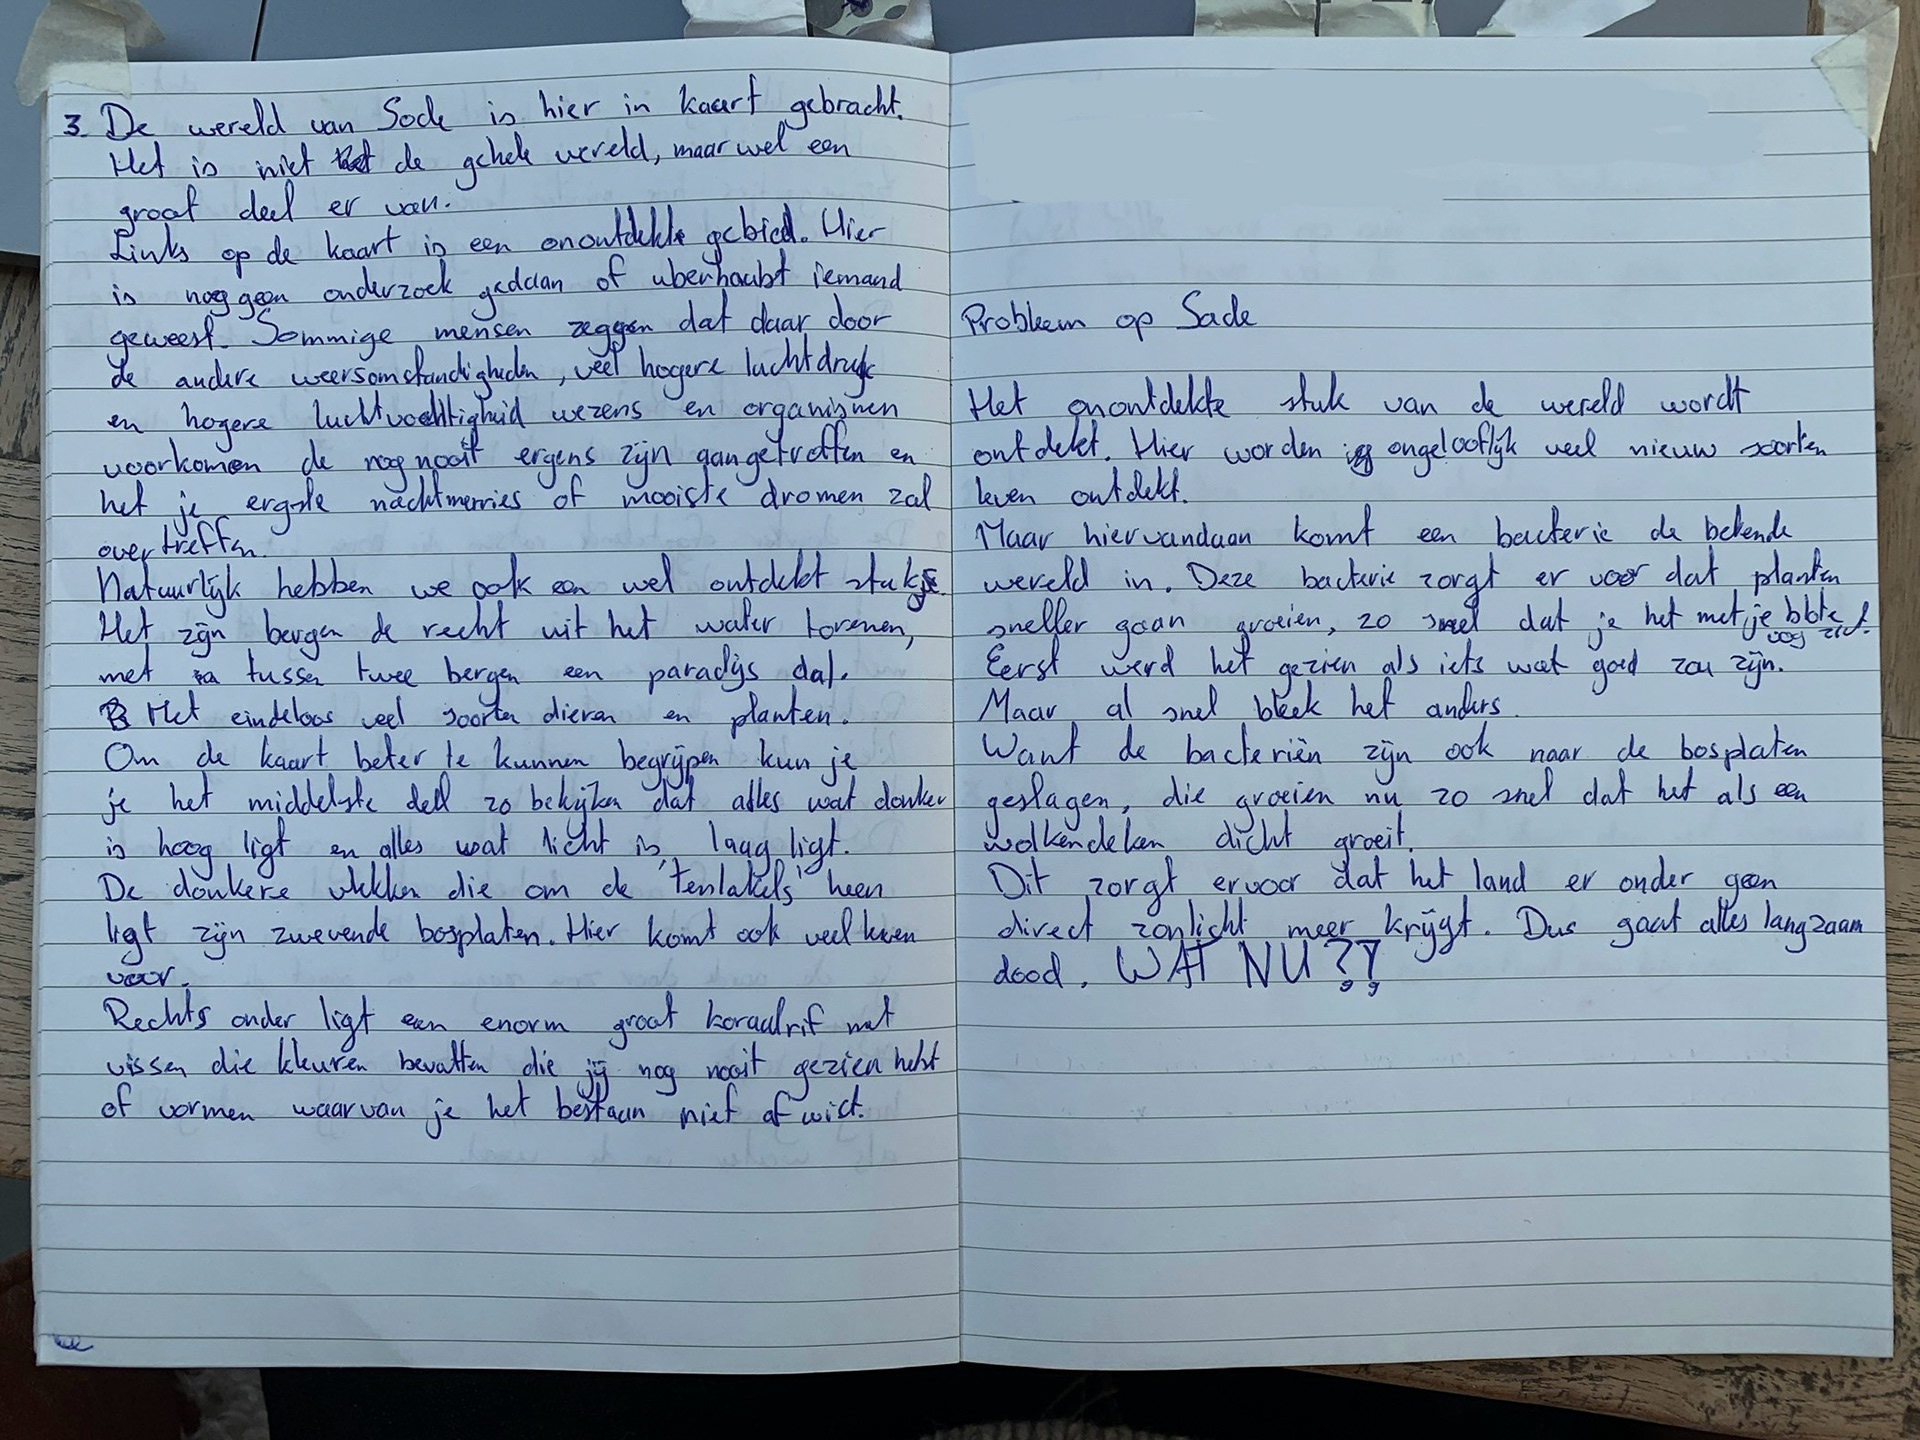 3. De wereld van Sode is hier in kaart gebracht.
Het is niet de gehele wereld, maar wel een
groot deel er van.
Links op de kaart is een onontdekte gebied. Hier
is nog geen onderzoek gedaan of uberhaubt iemand
geweest. Sommige mensen zeggen dat daar door
de andere weersomstandigheden, veel hogere luchtdruk
en hogere luchtvochtigheid wezens en organismen
voorkomen de nog nooit ergens zijn aangetroffen en
het je ergste nachtmerries of mooiste dromen zal
overtreffen.
Natuurlijk hebben we ook een wel ontdekt stukje.
Het zijn bergen de recht uit het water torenen,
met tussen twee bergen een paradijs dal.
Met eindeloos veel soorten dieren en planten.
Om de kaart beter te kunnen begrijpen kun je
je het middelste deel zo bekijken dat alles wat donker
is hoog ligt en alles wat licht is, laag ligt.
De donkere vlekken die om de 'tentakels' heen
ligt zijn zwevende bosplaten. Hier komt ook veel leven
voor.
Rechts onder ligt een enorm groot koraalrif met
vissen die kleuren bevatten die jij nog nooit gezien hebt
of vormen waarvan je het bestaan niet af wist.
Probleem op Sade
Het onontdekte stuk van de wereld wordt
ontdekt. Hier worden ongelooflijk veel nieuw soorten
leven ontdekt.
Maar hiervandaan komt een bacterie de bekende
wereld in. Deze bacterie zorgt er voor dat planten
sneller gaan groeien, zo snel dat je het met je blote
oog ziet.
Eerst werd het gezien als iets wat goed zou zijn.
Maar al snel bleek het anders.
Want de bacteriën zijn ook naar de bosplaten
geslagen, die groeien nu zo snel dat het als een
wolkendeken dicht groeit.
Dit zorgt ervoor dat het land er onder geen
direct zonlicht meer krijgt. Dus gaat alles langzaam
dood. WAT NU??